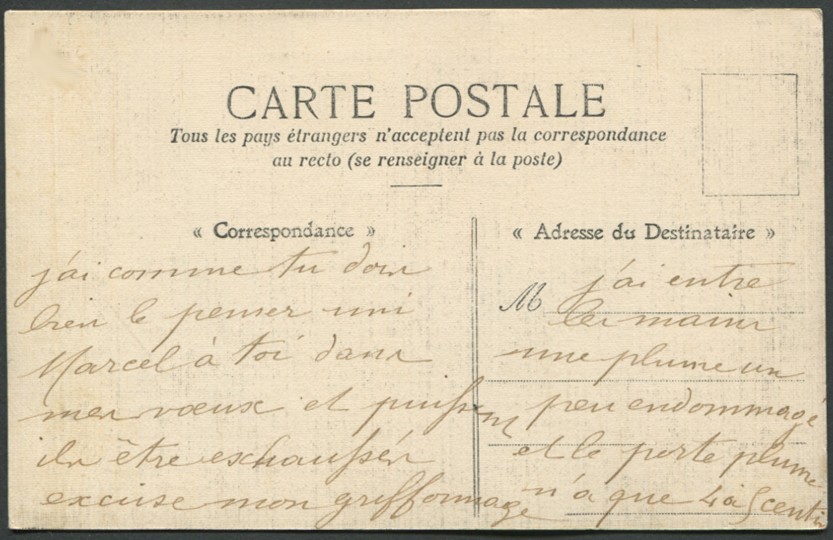 CARTE POSTALE
Tous les pays étrangers n'acceptent pas la correspondance
au recto (se renseigner à la poste)
« Correspondance »
j'ai comme tu dois
bien le penser uni
Marcel à toi dans
mes vœux et puissent
ils être eschaussés
excuse mon griffonnage
« Adresse du Destinataire »
M
j'ai entre
les mains
une plume un
peu endommagé
et le porte plume
n'a que 4 à 5 centi